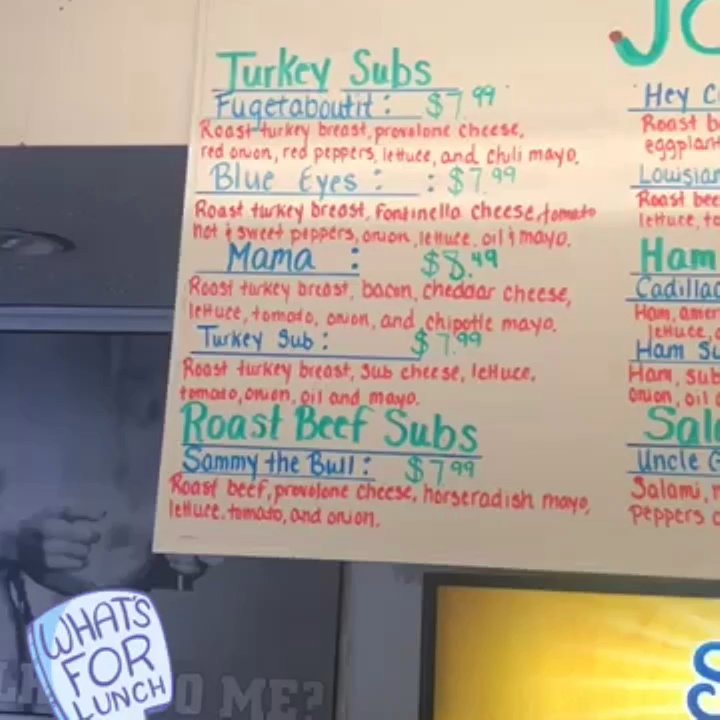 Turkey Subs
Fugetaboutit: $7.99
Roast turkey breast, provolone cheese,
red onion, red peppers, lettuce, and chili mayo.
Blue Eyes: : $7.99
Roast turkey breast, Fontinella cheese, tomato
hot & sweet peppers, onion, lettuce, oil & mayo.
Mama : $8.49
Roast turkey breast, bacon, cheddar cheese,
lettuce, tomato, onion, and chipotle mayo.
Turkey Sub: $7.99
Roast turkey breast, sub cheese, lettuce,
tomato, onion, oil and mayo.
Roast Beef Subs
Sammy the Bull: $7.99
Roast beef, provolone cheese, horseradish mayo,
lettuce, tomato, and onion.
Jo
Hey C
Roast b
eggplant
Louisian
Roast bee
lettuce, to
Ham
Cadillac
Ham, amer
lettuce,
Ham Su
Ham, sub
onion, oil
Sala
Uncle G
Salami,
peppers
WHAT'S
FOR
LUNCH
O ME?
S